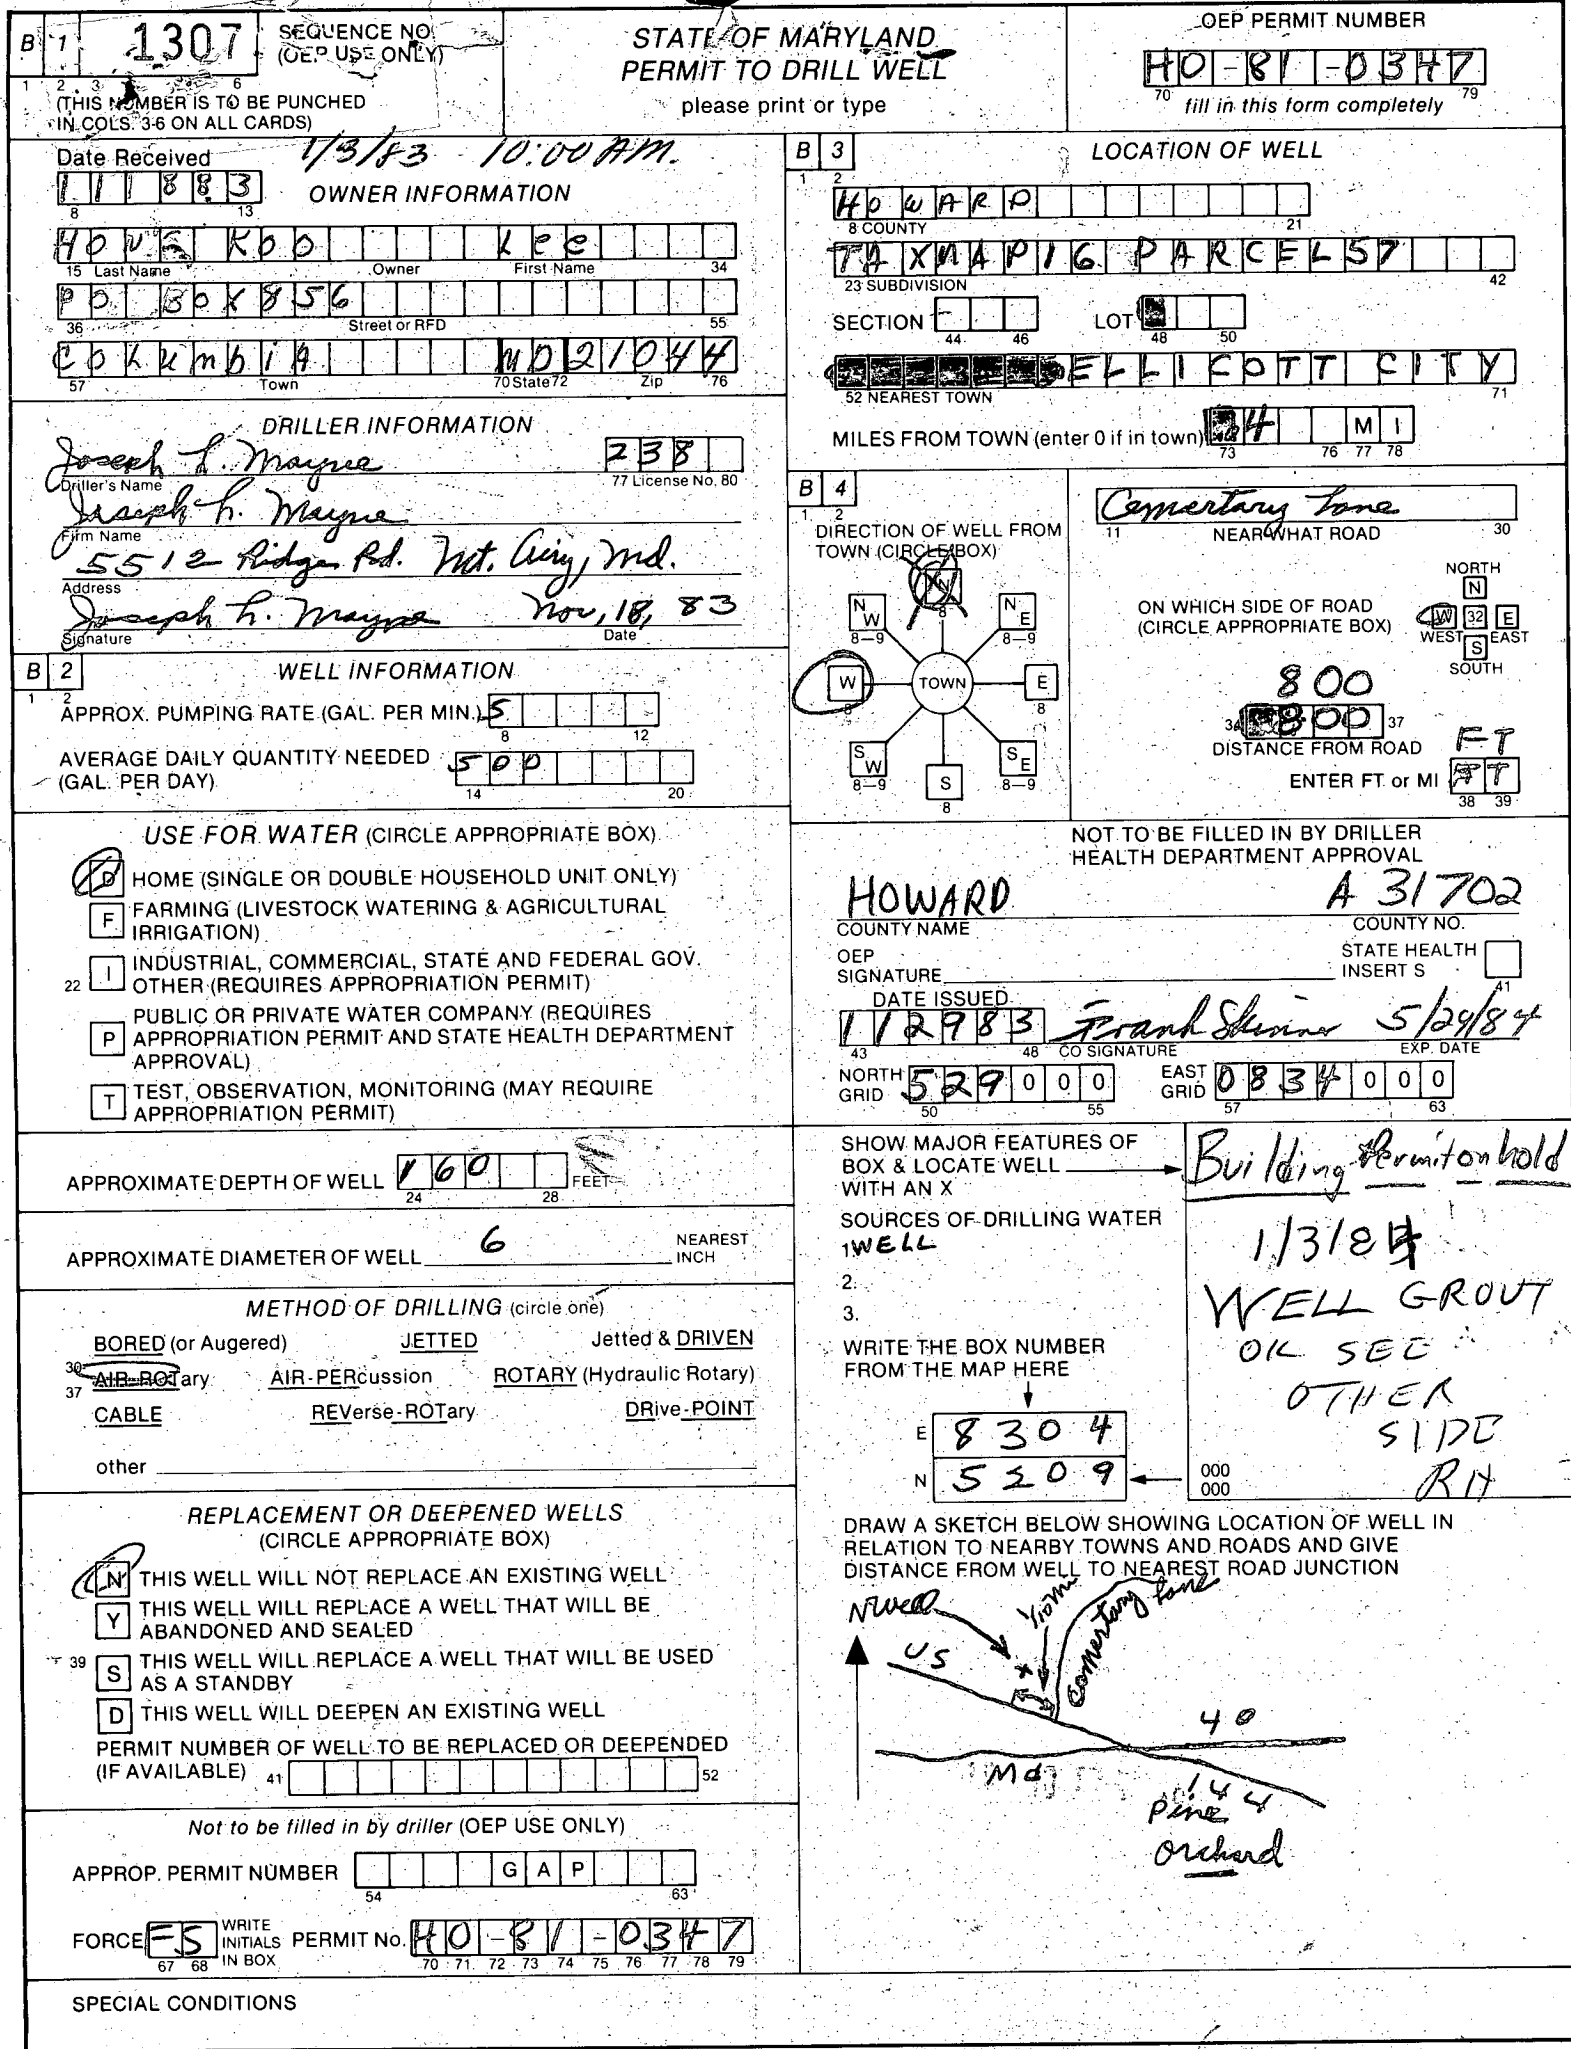 B 1 1307 SEQUENCE NO. (OEP USE ONLY)
1 2 3 6
(THIS NUMBER IS TO BE PUNCHED
IN COLS. 3-6 ON ALL CARDS)
STATE OF MARYLAND
PERMIT TO DRILL WELL
please print or type
OEP PERMIT NUMBER
HO-81-0347
70 79
fill in this form completely
Date Received 1/3/83 10:00 AM.
111883
8 13
OWNER INFORMATION
KOO Lee
15 Last Name Owner First Name 34
PO BOX 856
36 Street or RFD 55
Columbia MD 21044
57 Town 70 State 72 Zip 76
DRILLER INFORMATION
Joseph L. Mayne 238
Driller's Name 77 License No. 80
Joseph L. Mayne
Firm Name
5512 Ridge Rd. Mt. Airy, Md.
Address
Joseph L. Mayne Nov, 18, 83
Signature Date
B 2 WELL INFORMATION
1 2
APPROX. PUMPING RATE (GAL. PER MIN.) 5
8 12
AVERAGE DAILY QUANTITY NEEDED
(GAL. PER DAY) 500
14 20
USE FOR WATER (CIRCLE APPROPRIATE BOX)
D HOME (SINGLE OR DOUBLE HOUSEHOLD UNIT ONLY)
F FARMING (LIVESTOCK WATERING & AGRICULTURAL
IRRIGATION)
22 I INDUSTRIAL, COMMERCIAL, STATE AND FEDERAL GOV.
OTHER (REQUIRES APPROPRIATION PERMIT)
P PUBLIC OR PRIVATE WATER COMPANY (REQUIRES
APPROPRIATION PERMIT AND STATE HEALTH DEPARTMENT
APPROVAL)
T TEST, OBSERVATION, MONITORING (MAY REQUIRE
APPROPRIATION PERMIT)
APPROXIMATE DEPTH OF WELL 160 FEET
24 28
APPROXIMATE DIAMETER OF WELL 6 NEAREST
INCH
METHOD OF DRILLING (circle one)
BORED (or Augered) JETTED Jetted & DRIVEN
30 AIR-ROTary AIR-PERcussion ROTARY (Hydraulic Rotary)
37
CABLE REVerse-ROTary DRive-POINT
other
REPLACEMENT OR DEEPENED WELLS
(CIRCLE APPROPRIATE BOX)
N THIS WELL WILL NOT REPLACE AN EXISTING WELL
Y THIS WELL WILL REPLACE A WELL THAT WILL BE
ABANDONED AND SEALED
39 S THIS WELL WILL REPLACE A WELL THAT WILL BE USED
AS A STANDBY
D THIS WELL WILL DEEPEN AN EXISTING WELL
PERMIT NUMBER OF WELL TO BE REPLACED OR DEEPENDED
(IF AVAILABLE) 41 52
Not to be filled in by driller (OEP USE ONLY)
APPROP. PERMIT NUMBER G A P
54 63
FORCE FS WRITE INITIALS IN BOX PERMIT No. HO-81-0347
67 68 70 71 72 73 74 75 76 77 78 79
SPECIAL CONDITIONS
B 3 LOCATION OF WELL
1 2
HOWARD
8 COUNTY 21
TAXMAP16 PARCEL57
23 SUBDIVISION 42
SECTION LOT
44 46 48 50
ELLICOTT CITY
52 NEAREST TOWN 71
MILES FROM TOWN (enter 0 if in town) 4 M I
73 76 77 78
B 4
1 2
DIRECTION OF WELL FROM
TOWN (CIRCLE BOX)
N
8
NW NE
8-9 8-9
W TOWN E
8 8
SW SE
8-9 8-9
S
8
Cemertary Lane
11 NEAR WHAT ROAD 30
ON WHICH SIDE OF ROAD
(CIRCLE APPROPRIATE BOX)
NORTH
N
W 32 E
WEST EAST
S
SOUTH
800
34 800 37
DISTANCE FROM ROAD
FT
ENTER FT. or MI FT
38 39
NOT TO BE FILLED IN BY DRILLER
HEALTH DEPARTMENT APPROVAL
HOWARD A 31702
COUNTY NAME COUNTY NO.
OEP
SIGNATURE
STATE HEALTH
INSERT S
41
DATE ISSUED
112983 Frank Skinner 5/29/84
43 48 CO SIGNATURE EXP. DATE
NORTH GRID 529000 EAST GRID 0834000
50 55 57 63
SHOW MAJOR FEATURES OF
BOX & LOCATE WELL
WITH AN X
Building Permit on hold
SOURCES OF DRILLING WATER
1. WELL
2.
3.
1/3/84
WELL GROUT
OK SEE
OTHER
SIDE
RH
WRITE THE BOX NUMBER
FROM THE MAP HERE
E 8304
N 5209
000
000
DRAW A SKETCH BELOW SHOWING LOCATION OF WELL IN
RELATION TO NEARBY TOWNS AND ROADS AND GIVE
DISTANCE FROM WELL TO NEAREST ROAD JUNCTION
N Well
1/10 m
Comertary Lane
US
X
40
Md
144
Pine
Orchard